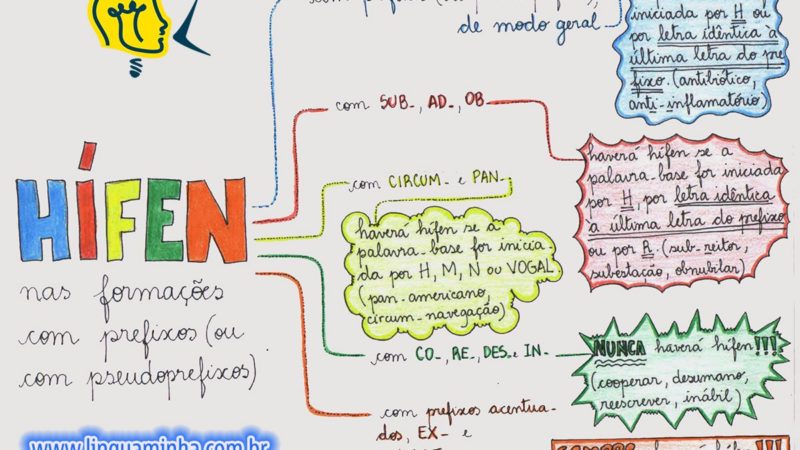 de modo geral
iniciada por H ou
por letra idêntica à
última letra do pre
fixo. (antibiótico,
anti-inflamatório)
com SUB-, AD-, OB-
haverá hífen se a
palavra-base for iniciada
por H, por letra idêntica
a última letra do prefixo
ou por R (sub-reitor,
subestação, obnubilar)
com CIRCUM- e PAN-
haverá hífen se a
palavra-base for inicia-
da por H, M, N ou VOGAL
(pan-americano,
circum-navegação)
HÍFEN
nas formações
com prefixos (ou
com pseudoprefixos)
com CO-, RE-, DES- e IN-
NUNCA haverá hífen!!!
(cooperar, desumano,
reescrever, inábil)
com prefixos acentua-
dos, EX- e
haverá hífen!!!
www.linguaminha.com.br